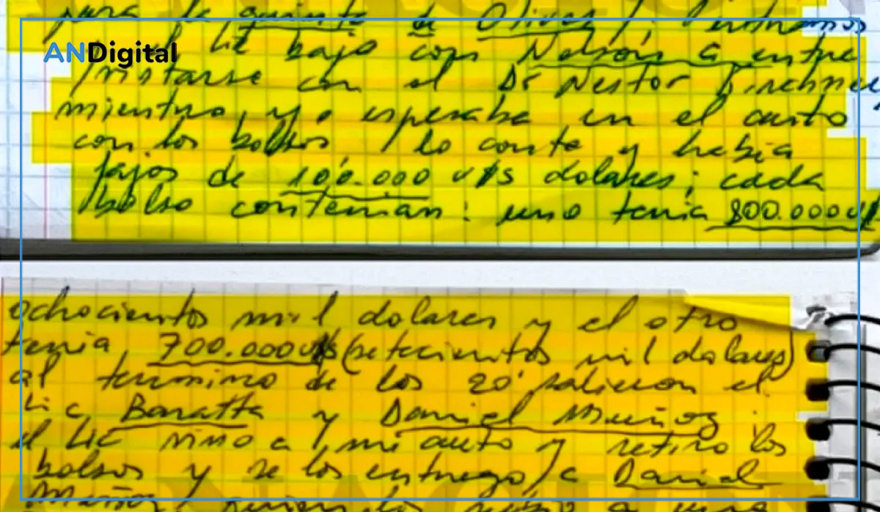 para la quinta de Olivos /
ANDigital
el Lic bajo con Nelson a entre
/vistarse con el Dr Nestor Kirchner
mientras yo esperaba en el auto
con los bolsos / lo conte y habia
fajos de 100.000 u$s dolares; cada
bolso contenian: uno tenia 800.000 u$
ochocientos mil dolares y el otro
tenia 700.000 u$s (setecientos mil dolares)
al termino de los 20' salieron el
Lic Baratta y Daniel Muñoz:
el Lic vino a / mi auto y retiro los
bolsos y se los entrego / a Daniel
Muñoz /